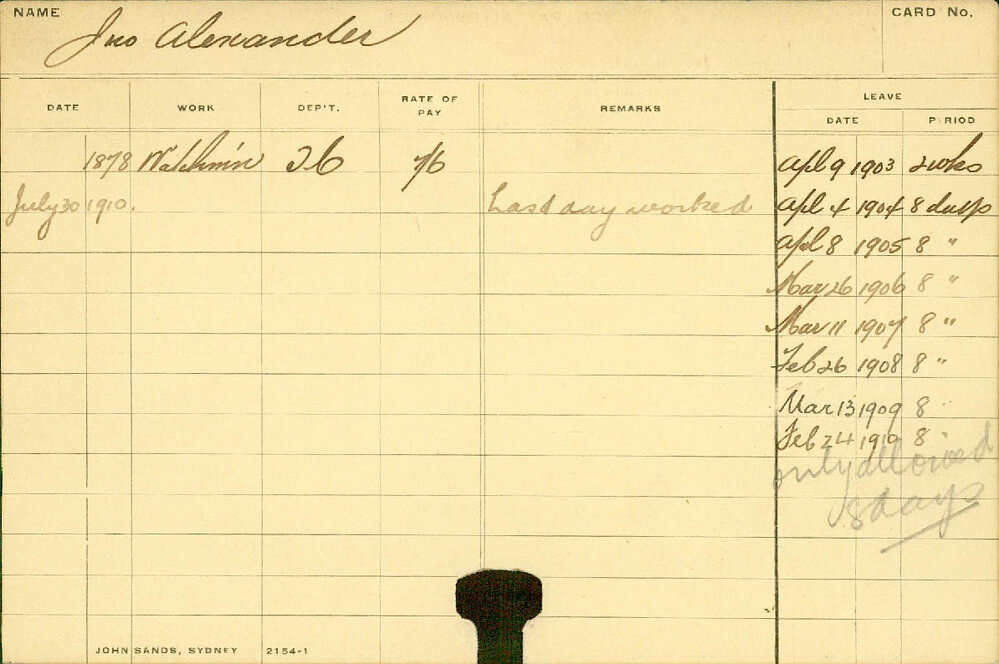 NAME CARD No.
Jno Alexander
DATE WORK DEP'T. RATE OF PAY REMARKS LEAVE
DATE PERIOD
1878 Watchmin 26 7/6 Apl 9 1903 2 wks
July 30 1910. Last day worked Apl 4 1904 8 days
Apl 8 1905 8 "
Mar 26 1906 8 "
Mar 11 1907 8 "
Feb 26 1908 8 "
Mar 13 1909 8 "
Feb 24 1910 8
only allowed
8 days
JOHN SANDS, SYDNEY 2154-1